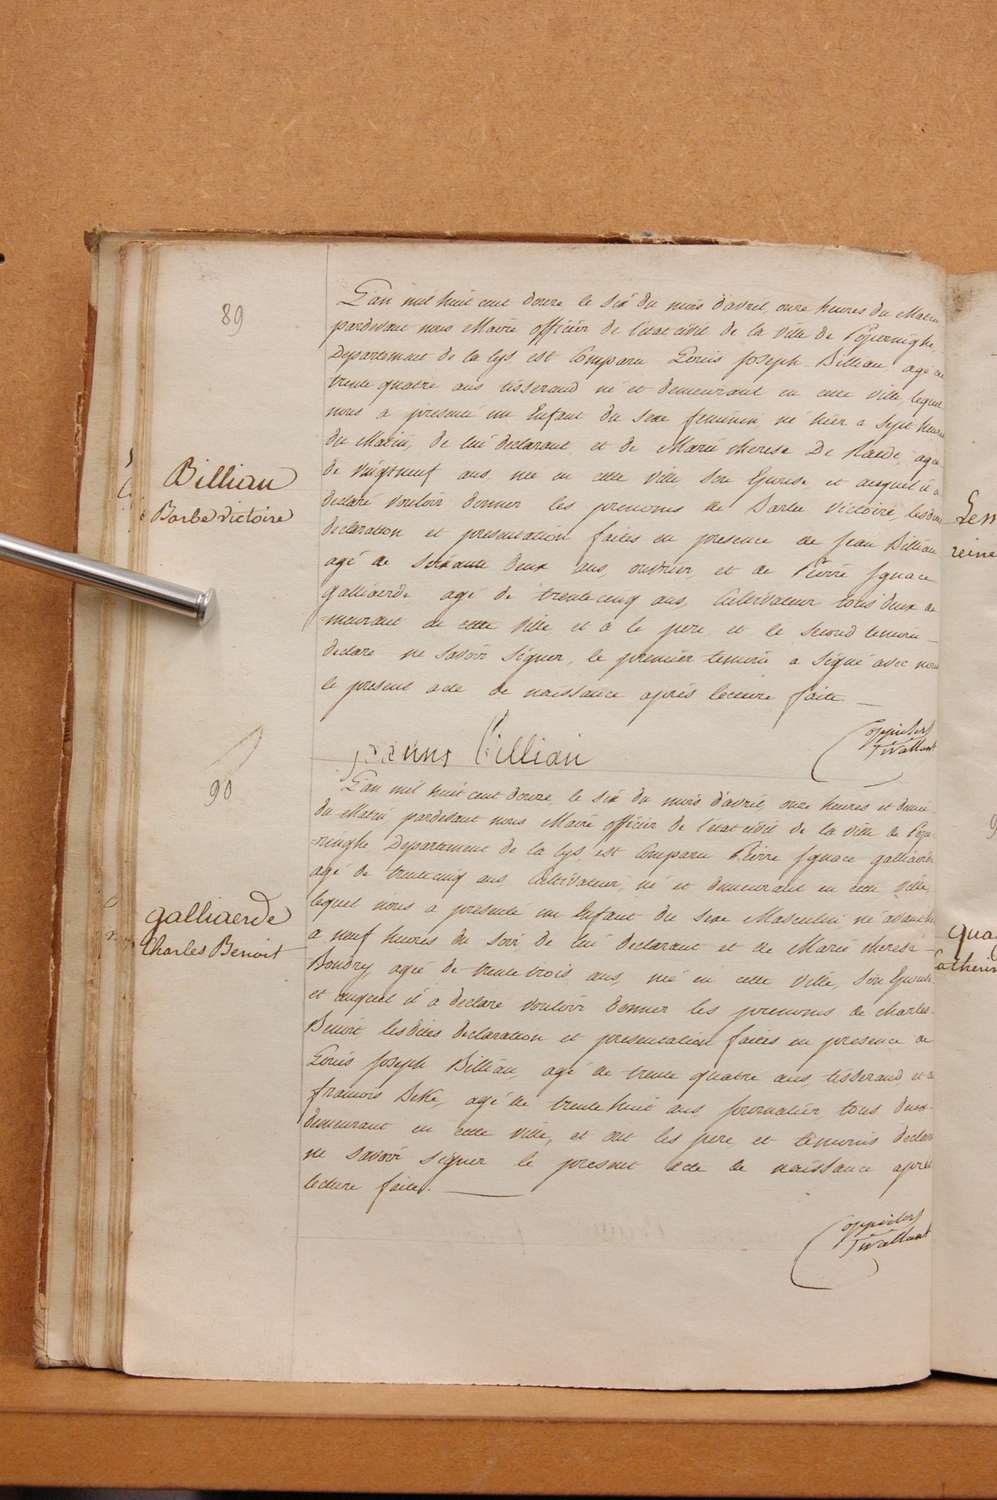 89
L'an mil huit cent douze le six du mois d'avril, onze heures du Matin
pardevant nous Maire officier de l'état civil de la ville de Poperinghe,
Departement de la Lys est Comparu Louis Joseph Billiau agé de
trente quatre ans tisserand né et demeurant en cette ville, lequel
nous a presenté un Enfant du sexe feminin né hier a Sept heures
du Matin, de lui declarant et de Marie therese De agée
de Vingtneuf ans née en cette ville Son Epouse et auquel il a
declaré vouloir donner les prenoms de Barbe Victoire, lesdites
declaration et presentation faites en presence de Jean Billiau
agé de Soixante deux ans, ouvrier et de Pierre Ignace
galliaerde agé de trentecinq ans, Cultivateur tous deux de
meurant en cette Ville et a le pere et le second temoin
declaré ne savoir signer, le premier temoin a signé avec nous
le present acte de naissance après lecture faite
Billiau
Barbe Victoire
Joannes Billiau
90
L'an mil huit cent douze, le six du mois d'avril, onze heures et demie
du Matin pardevant nous Maire officier de l'état civil de la ville de Pope
ringhe Departement de la Lys est Comparu Pierre Ignace galliaerde
agé de trentecinq ans Cultivateur, né et demeurant en cette Ville,
lequel nous a presenté un Enfant du sexe Masculin né avanthier
a neuf heures du soir de lui declarant et de Marie therese
Boudry agée de trente trois ans, née en cette Ville, Son Epouse
et auquel il a declaré vouloir donner les prenoms de Charles
Benoit lesdites declaration et presentation faites en presence de
Louis Joseph Billiau, agé de trente quatre ans, tisserand et de
francois agé de trente huit ans journalier tous deux
demeurant en cette ville, et ont les pere et temoins declaré
ne savoir signer le present acte de naissance après
lecture faite.
galliaerde
Charles Benoit